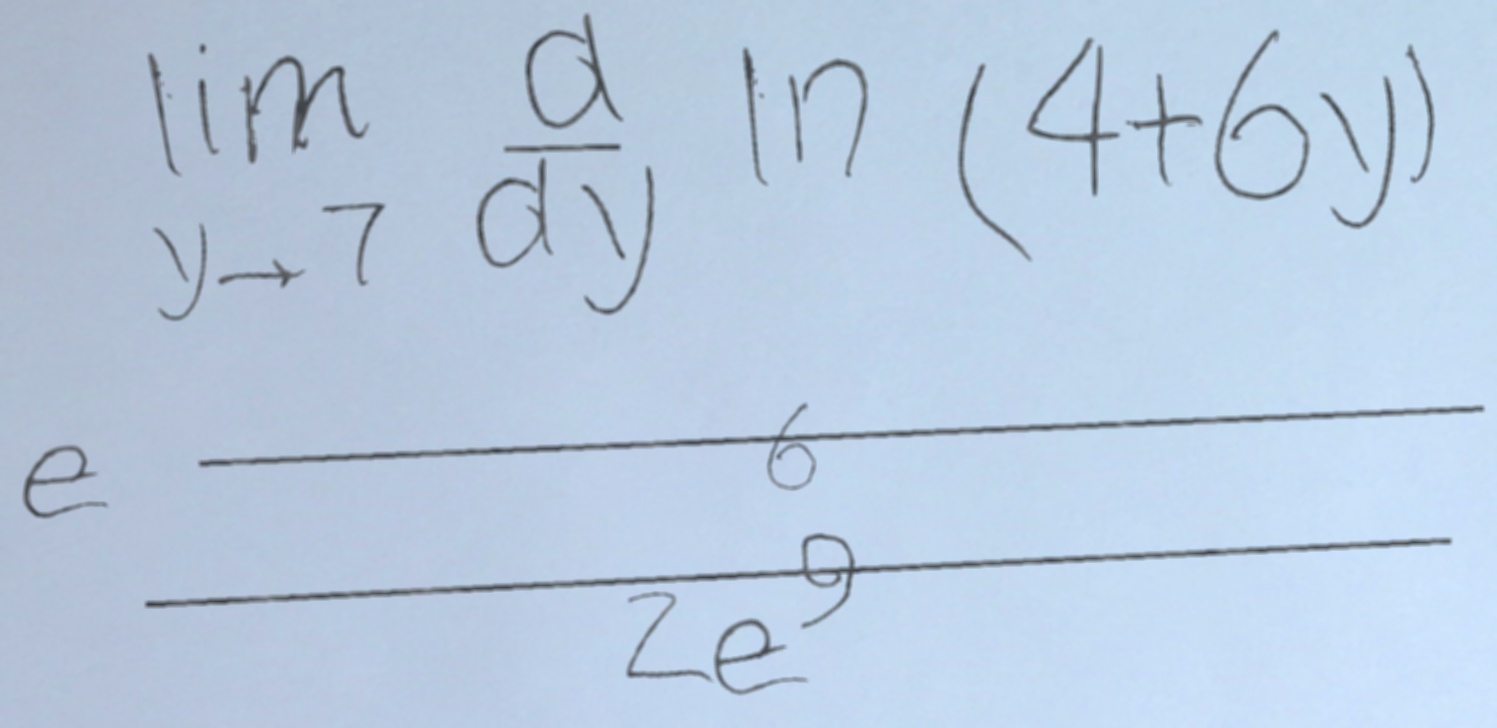 \frac{e^{\frac{\lim_{y \to 7} \frac{d}{dy} \ln (4+6y)}{6}}}{2e^{9}}